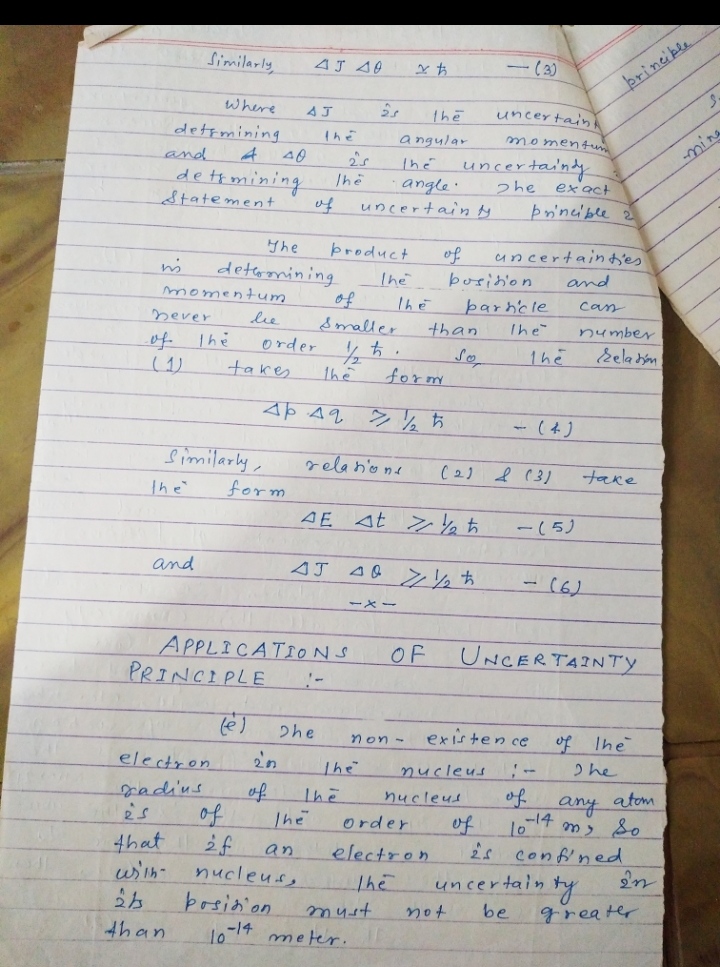 Similarly, ΔJ Δθ ≈ ħ —(3)
Where ΔJ is the uncertaint
determining the angular momentum
and Δ Δθ is the uncertainty
determining the angle. The exact
Statement of uncertainty principle
The product of uncertainties
in determining the position and
momentum of the particle can
never be smaller than the number
of the order 1/2 ħ. So, the relation
(1) takes the form
Δp Δq ≥ 1/2 ħ —(4)
Similarly, relations (2) & (3) take
the form
ΔE Δt ≥ 1/2 ħ —(5)
and ΔJ Δθ ≥ 1/2 ħ —(6)
—x—
APPLICATIONS OF UNCERTAINTY
PRINCIPLE :-
(i) The non-existence of the
electron in the nucleus :- The
radius of the nucleus of any atom
is of the order of 10⁻¹⁴ m, So
that if an electron is confined
with nucleus, the uncertainty in
its position must not be greater
than 10⁻¹⁴ meter.
principle